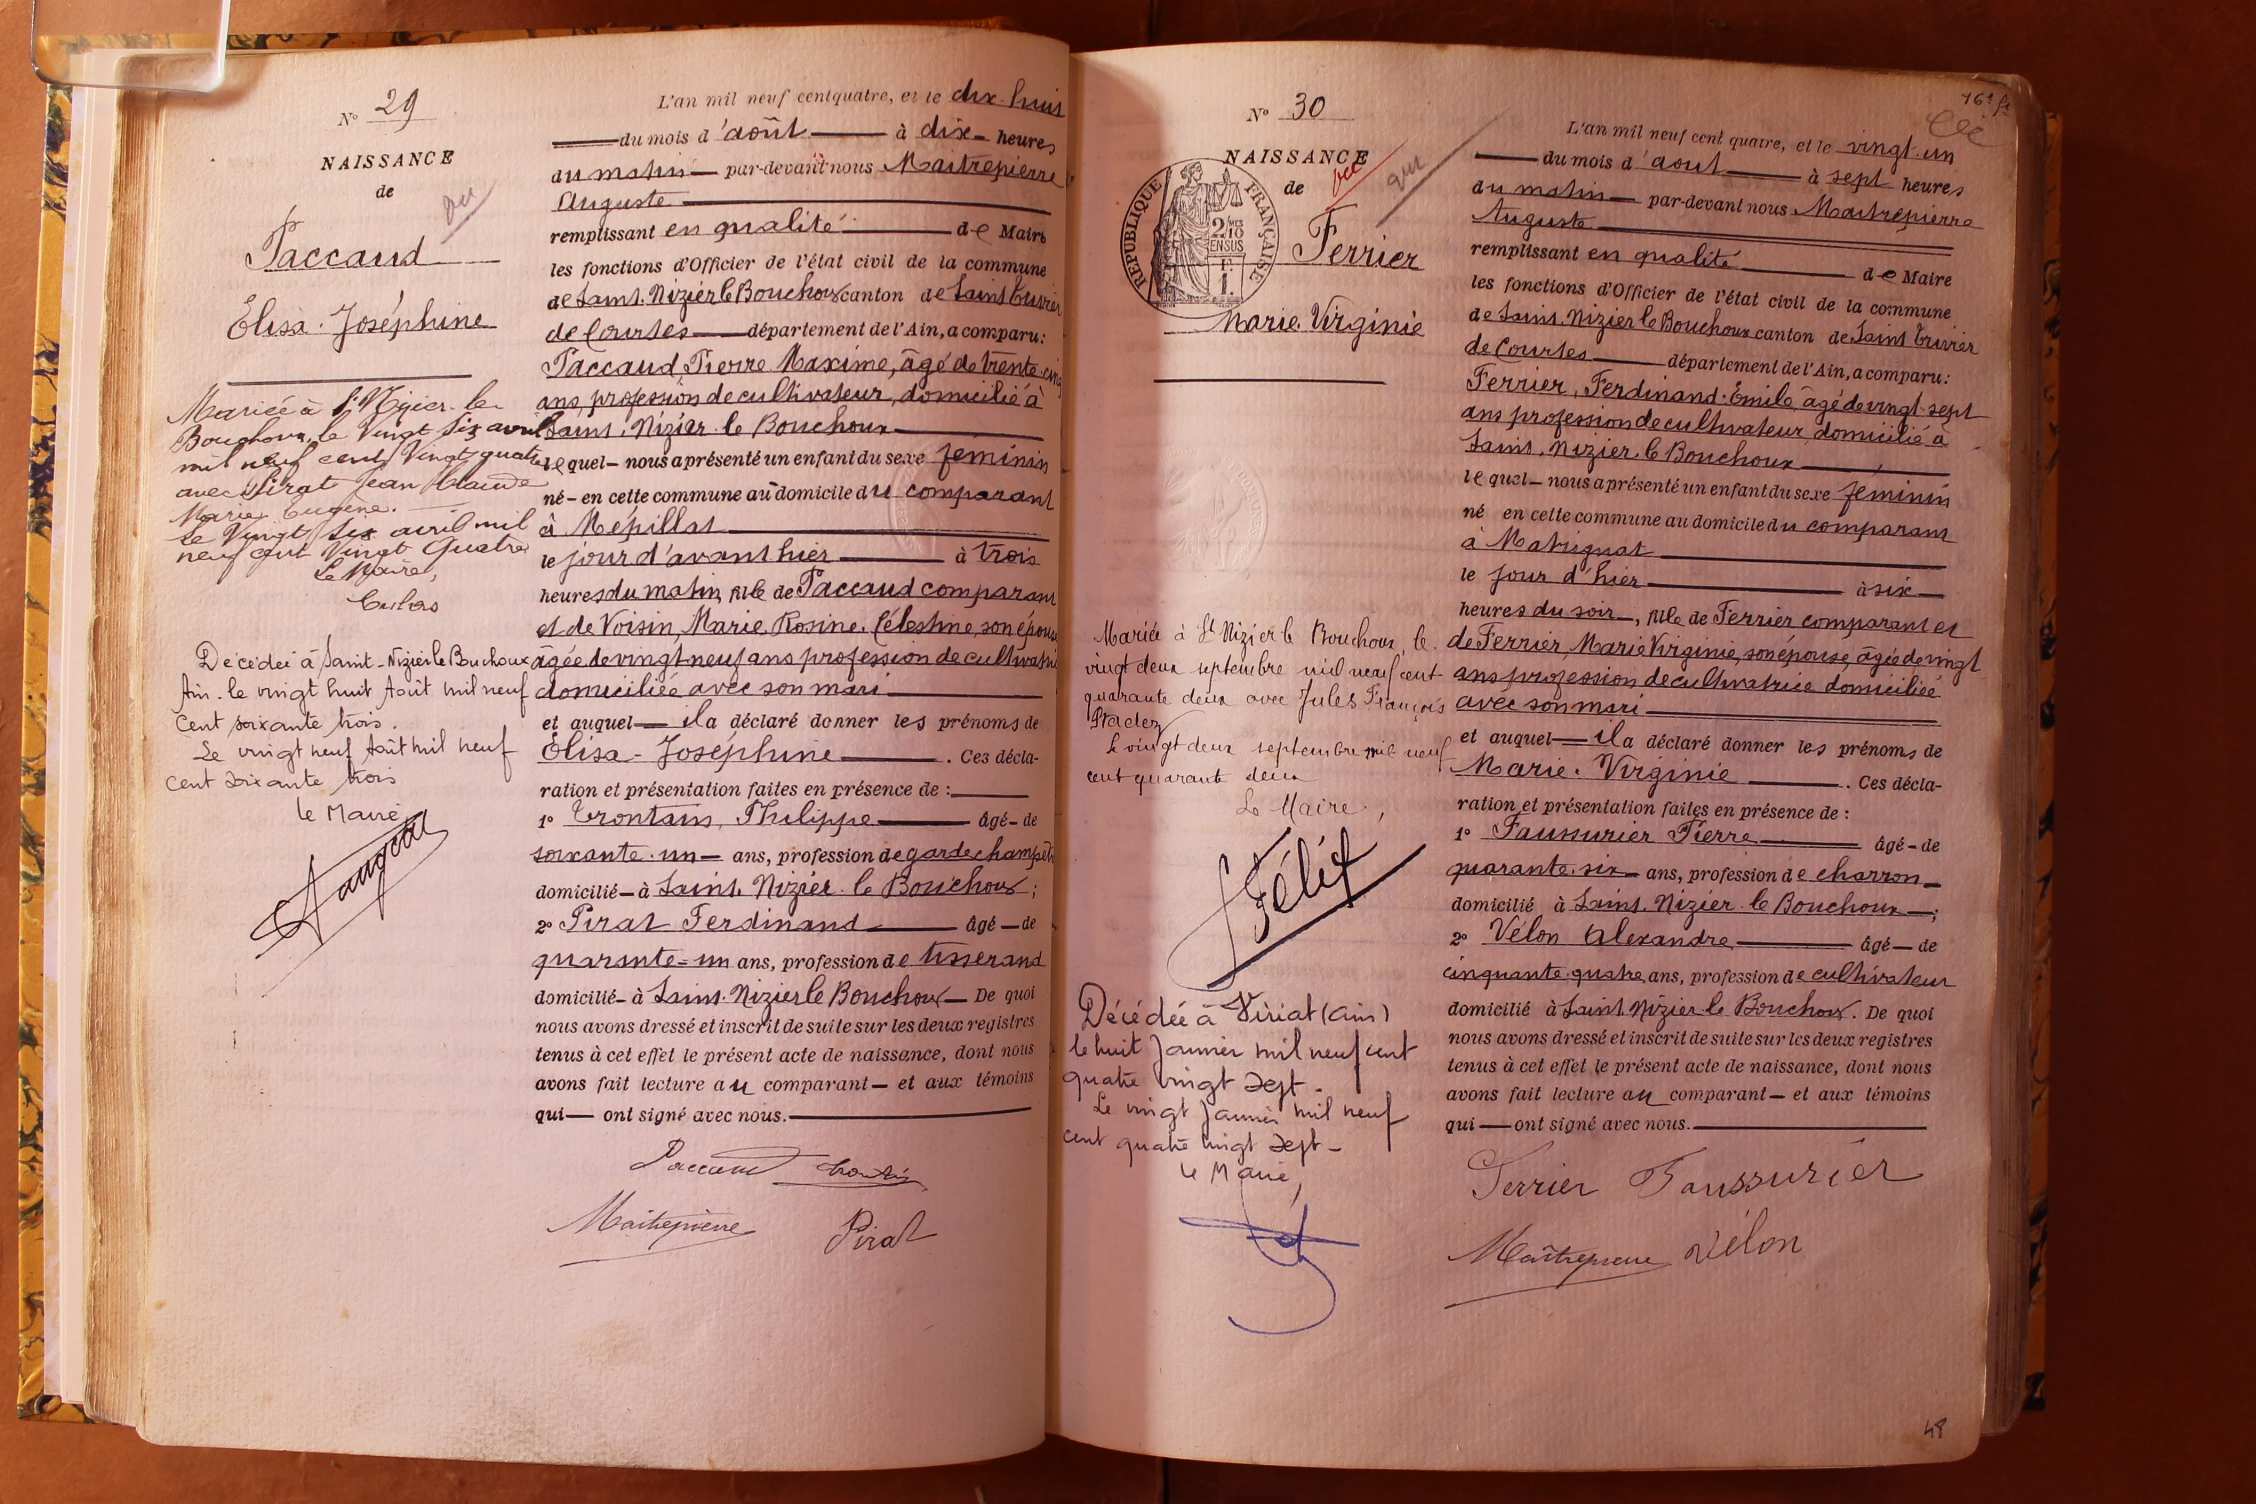 Nº 29
NAISSANCE
de
vu
Paccaud
Élisa. Joséphine
Mariée à St Nizier le
Bouchoux, le Vingt Six avril
mil neuf cent Vingt quatre
avec Pirat Jean Claude
Marie Eugène.
Le Vingt Six avril mil
neuf cent Vingt Quatre
Le Maire,
Décédée à Saint-Nizier le Bouchoux
Ain. le vingt huit Août mil neuf
cent soixante trois.
Le vingt neuf Août mil neuf
cent soixante trois
le Maire
L'an mil neuf cent quatre, et le dix-huit
du mois d'août à dix heures
du matin par-devant nous Maitrepierre
Auguste
remplissant en qualité de Maire
les fonctions d'Officier de l'état civil de la commune
de Saint. Nizier le Bouchoux canton de Saint Trivier
de Courtes département de l'Ain, a comparu:
Paccaud, Pierre Maxime, âgé de trente-cinq
ans, profession de cultivateur, domicilié à
Saint. Nizier. le Bouchoux
lequel nous a présenté un enfant du sexe féminin
né en cette commune au domicile du comparant
à Mépillat
le jour d'avant hier à trois
heures du matin, fille de Paccaud comparant
et de Voisin, Marie. Rosine. Célestine, son épouse
âgée de vingt-neuf ans profession de cultivatrice
domiciliée avec son mari
et auquel il a déclaré donner les prénoms de
Élisa - Joséphine. Ces décla-
ration et présentation faites en présence de :
1º Trontain, Philippe âgé de
soixante. un ans, profession de garde champêtre
domicilié à Saint. Nizier. le Bouchoux ;
2º Pirat Ferdinand âgé de
quarante-un ans, profession de tisserand
domicilié à Saint. Nizier le Bouchoux De quoi
nous avons dressé et inscrit de suite sur les deux registres
tenus à cet effet le présent acte de naissance, dont nous
avons fait lecture au comparant et aux témoins
qui ont signé avec nous.
Paccaud
Maitrepierre Pirat
16e ft
Nº 30
NAISSANCE
de
vu
RÉPUBLIQUE FRANÇAISE
2/10 EN SUS
F.
1.
Ferrier
Marie. Virginie
Mariée à St Nizier le Bouchoux, le
vingt deux septembre mil neuf cent
quarante deux avec Jules François
Le vingt deux septembre mil neuf
cent quarante deux
Le Maire,
Félix
Décédée à Viriat (Ain)
le huit Janvier mil neuf cent
quatre vingt sept.
Le vingt Janvier mil neuf
cent quatre vingt sept -
le Maire,
L'an mil neuf cent quatre, et le vingt-un
du mois d'aout à sept heures
du matin par-devant nous Maitrepierre
Auguste
remplissant en qualité de Maire
les fonctions d'Officier de l'état civil de la commune
de Saint. Nizier le Bouchoux canton de Saint Trivier
de Courtes département de l'Ain, a comparu:
Ferrier, Ferdinand. Émile, âgé de vingt-sept
ans profession de cultivateur, domicilié à
Saint. Nizier. le Bouchoux
lequel nous a présenté un enfant du sexe féminin
né en cette commune au domicile du comparant
à Matrignat
le jour d'hier à six
heures du soir, fille de Ferrier comparant et
de Ferrier, Marie Virginie, son épouse, âgée de vingt
ans profession de cultivatrice domiciliée
avec son mari
et auquel il a déclaré donner les prénoms de
Marie. Virginie. Ces décla-
ration et présentation faites en présence de :
1º Faussurier Pierre âgé de
quarante. six ans, profession de charron
domicilié à Saint. Nizier. le Bouchoux ;
2º Vélon Alexandre âgé de
cinquante-quatre, ans, profession de cultivateur
domicilié à Saint. Nizier le Bouchoux. De quoi
nous avons dressé et inscrit de suite sur les deux registres
tenus à cet effet le présent acte de naissance, dont nous
avons fait lecture au comparant et aux témoins
qui ont signé avec nous.
Ferrier Faussurier
Maîtrepierre Vélon
48